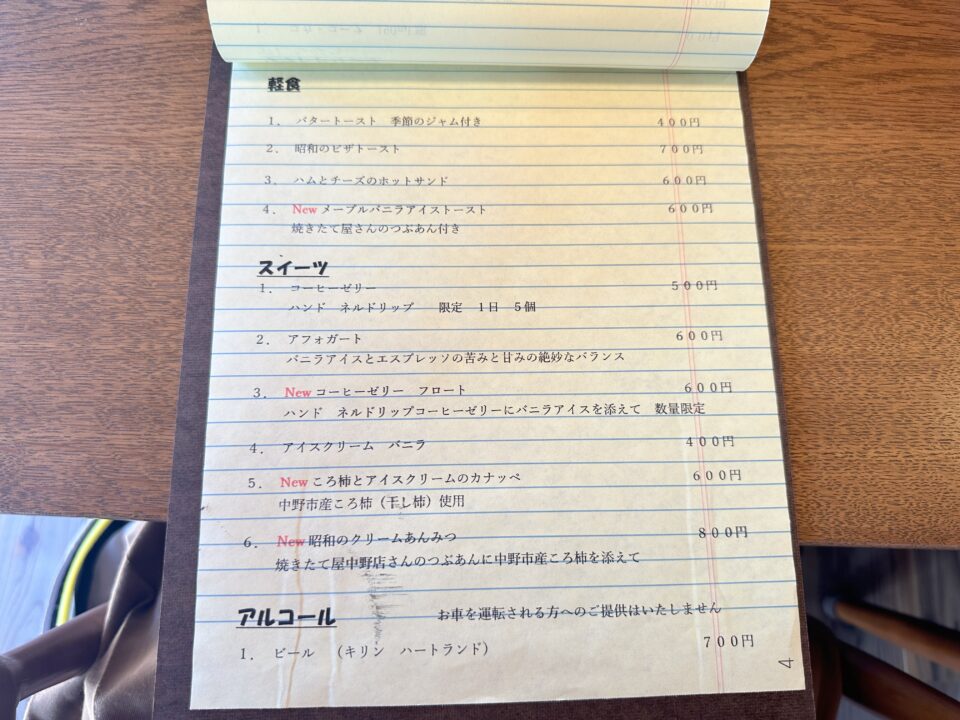 軽食
1． バタートースト　季節のジャム付き　400円
2． 昭和のピザトースト　700円
3． ハムとチーズのホットサンド　600円
4． New メープルバニラアイストースト　600円
焼きたて屋さんのつぶあん付き
スイーツ
1． コーヒーゼリー　500円
ハンド　ネルドリップ　限定　1日　5個
2． アフォガート　600円
バニラアイスとエスプレッソの苦みと甘みの絶妙なバランス
3． New コーヒーゼリー　フロート　600円
ハンド　ネルドリップコーヒーゼリーにバニラアイスを添えて　数量限定
4． アイスクリーム　バニラ　400円
5． New ころ柿とアイスクリームのカナッペ　600円
中野市産ころ柿（干し柿）使用
6． New 昭和のクリームあんみつ　800円
焼きたて屋中野店さんのつぶあんに中野市産ころ柿を添えて
アルコール　お車を運転される方へのご提供はいたしません
1． ビール　（キリン　ハートランド）　700円
4